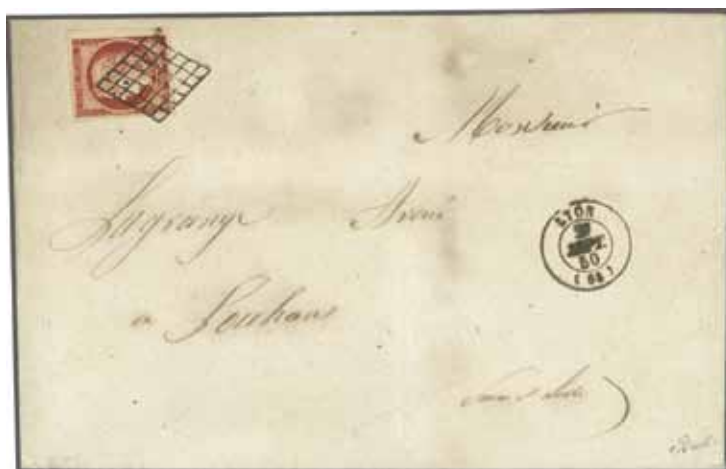 Monsieur
Lagrange Avoué
LYON
SEPT.
50
(68)
a Louhans